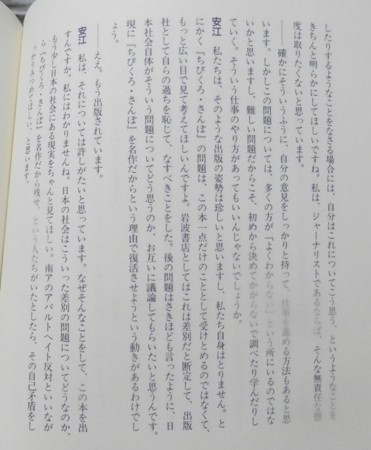 したりするようなことをなさる場合には、自分はこれについてこう思う、というようなことを
きちんと明らかにしてほしいですね。私は、ジャーナリストであるならば、そんな無責任な態
度は取りたくないと思っています。
――確かにそういうふうに、自分の意見をしっかりと持って、仕事を進める方法もあると思
います。しかしこの問題については、多くの方が「よくわからない」という所にいるのではな
いかと思いますし、難しい問題だからこそ、初めから決めてかからないで調べたり学んだりし
ていく、そういう仕事のやり方があってもいいんじゃないでしょうか。
安江 私たちは、そのような出版の姿勢は珍しいと思いますし、私たち自身はとりません。と
にかく『ちびくろ・さんぼ』の問題は、この本一点だけのこととして受けとめるのではなくて、
もっと広い目で見て考えてほしいんですよ。岩波書店としてはこれは差別だと断定して、出版
社として自らの過ちを恥じて、なすべきことをした。後の問題はさきほども言ったように、日
本社会自体がそういう問題についてどう思うのか、お互いに議論してもらいたいと思うんです。
現に『ちびくろ・さんぼ』を名作だからという理由で復活させようという動きがあるわけでし
ょう。
――ええ。もう出版されています。
安江 私は、それについては話しがたいと思っています。なぜそんなことをして、この本を出
すんですか、私にはわかりませんね。日本の社会はこういった差別の問題についてどうなのか、
もう少し日本の社会にある現実をちゃんと見てほしい。南アのアパルトヘイト反対といいなが
ら『ちびくろ・さんぼ』を名作だから残せ、という人たちがいたとしたら、その自己矛盾をし